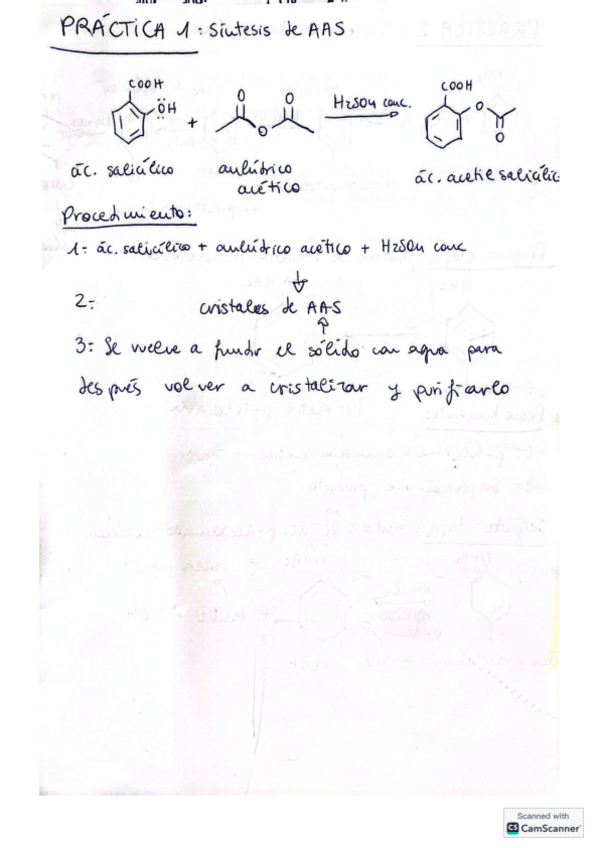 PRÁCTICA 1: Síntesis de AAS
COOH
ÖH
+
O O
O
H2SO4 conc.
COOH
O
O
ác. salicílico
anhídrico
acético
ác. acetil salicílic
Procedimiento:
1= ác. salicílico + anhídrico acético + H2SO4 conc
2=
cristales de AAS
3: Se vuelve a fundir el sólido con agua para
después volver a cristalizar y purificarlo
Scanned with
CS CamScanner